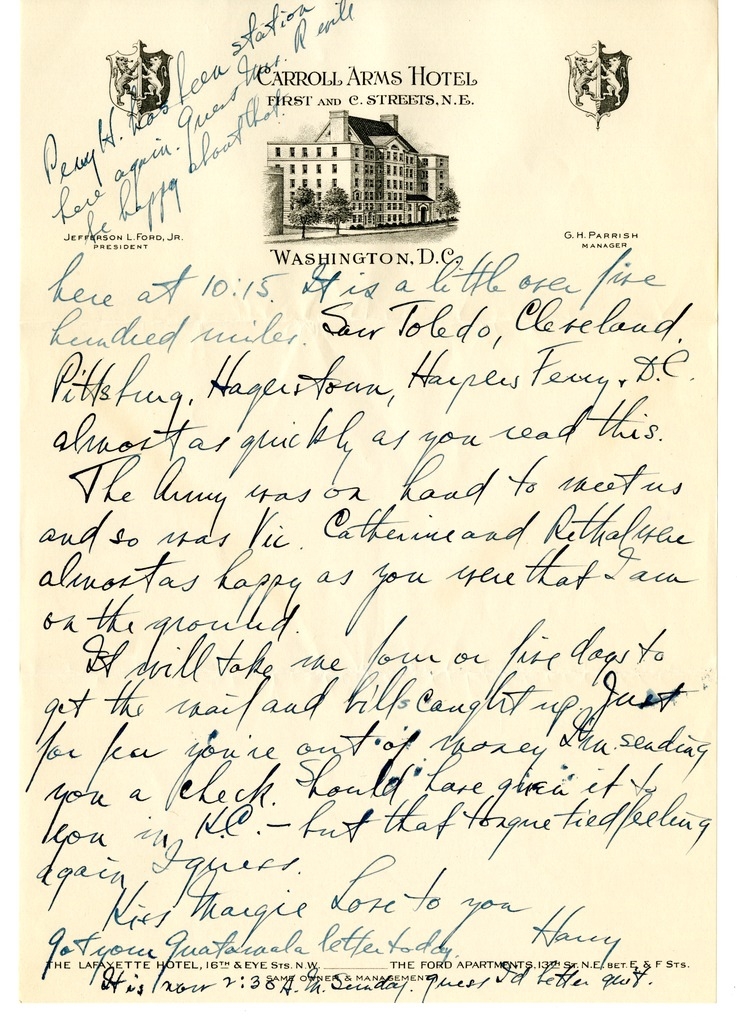 Perry H. has been station
here again. Guess Mrs. R will
be happy about that.
CARROLL ARMS HOTEL
FIRST AND C. STREETS, N.E.
JEFFERSON L. FORD, JR.
PRESIDENT
G. H. PARRISH
MANAGER
WASHINGTON, D.C.
here at 10:15. It is a little over five
hundred miles. Saw Toledo, Cleveland,
Pittsburg, Hagerstown, Harpers Ferry, D.C.
almost as quickly as you read this.
The Army was on hand to meet us
and so was Vic. Catherine and Rethal were
almost as happy as you were that I am
on the ground.
It will take me four or five days to
get the mail and bills caught up. Just
for fear you're out of money I'm sending
you a check. Should have given it to
you in K.C. - but that tongue tied feeling
again I guess.
Kiss Margie Love to you
Harry
Got your Guatamala letter today.
THE LAFAYETTE HOTEL, 16TH & EYE STS. N.W. THE FORD APARTMENTS, 13TH ST. N.E. BET. E & F STS.
SAME OWNER & MANAGEMENT
It is now 2:38 A.M. Sunday. Guess I'd better quit.